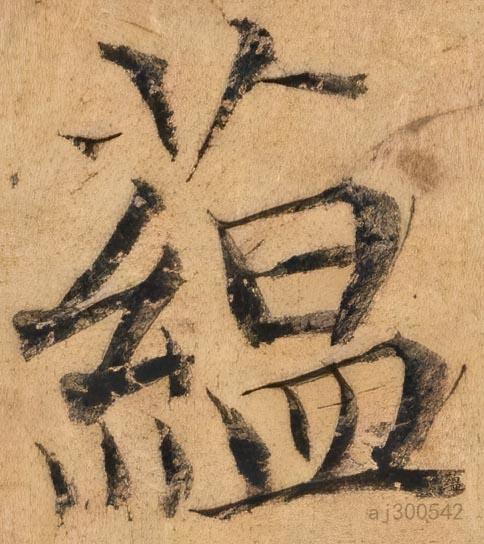 蕴
aj300542